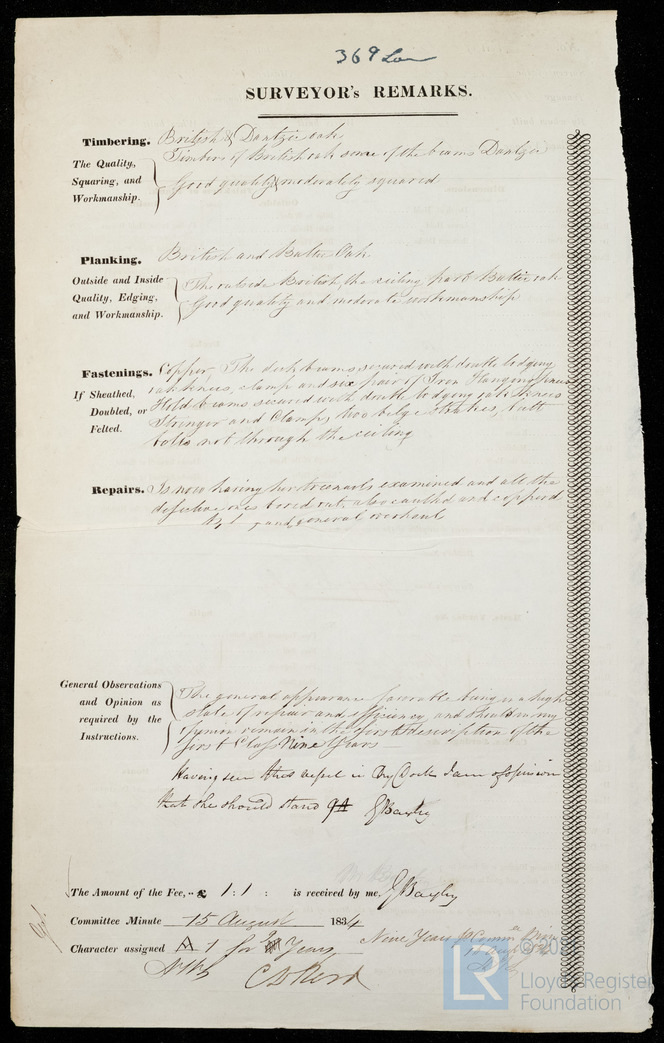 369 Lon
SURVEYOR's REMARKS.
Timbering. British & Dantzic oak
The Quality, Squaring, and Workmanship. Timbers of British oak some of the beams Dantzic
Good quality & moderately squared
Planking. British and Baltic Oak
Outside and Inside Quality, Edging, and Workmanship. The outside British, the ceiling part Baltic oak
Good quality and moderate workmanship
Fastenings. Copper The deck beams secured with double lodging
If Sheathed, Doubled, or Felted. oak knees, clamp and six pair of Iron Hanging knees
Hold beams secured with double lodging oak knees
Stringer and Clamp, two bilge strakes, butt
bolts not through the ceiling
Repairs. Is now having her treenails examined and all the
defective ones bored out, also caulkd and copperd
and general overhaul
General Observations and Opinion as required by the Instructions. The general appearance favorable being in a high
state of repair and efficiency and should in my
opinion remain in the first description of the
first Class Nine Years
Having seen this vessel in Dry Dock I am of opinion
that she should stand 9A J Bayley
The Amount of the Fee, .. £ 1 : 1 : is received by me, J Bayley
Committee Minute 15 August 1834
Character assigned A 1 for 9 Years
Nine Years
© 20
LR
Lloyd's Register
Foundation